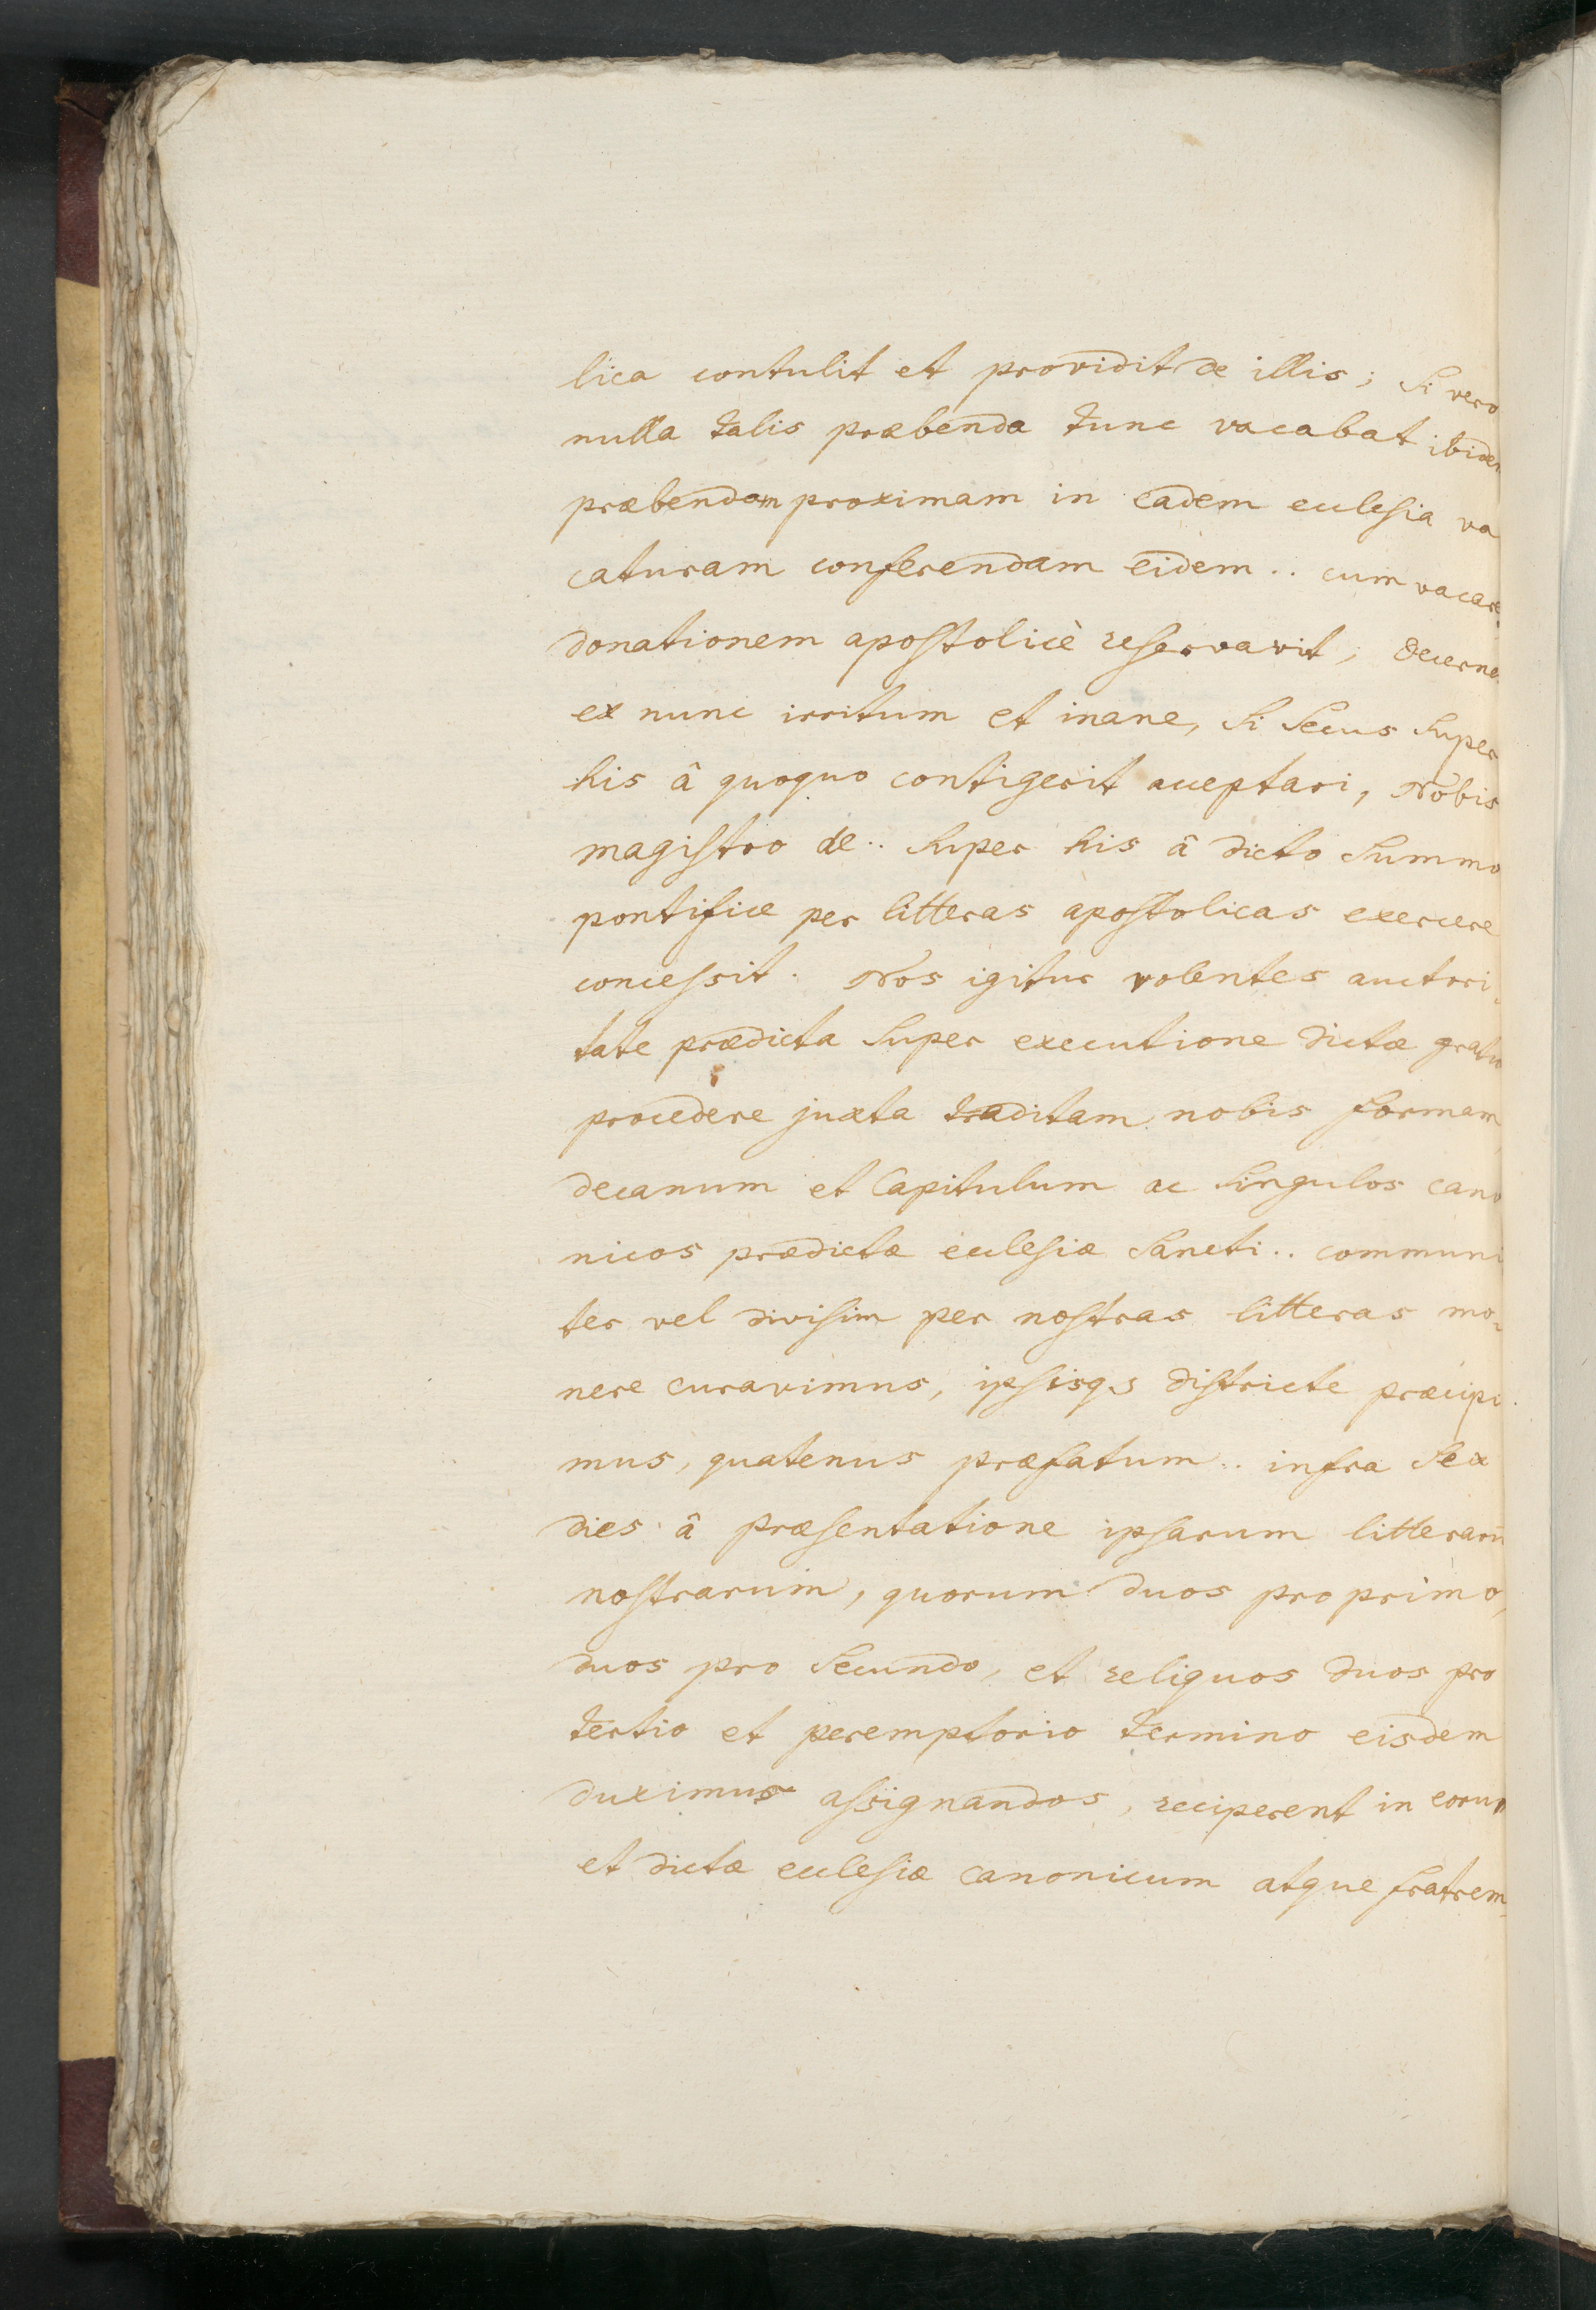 lica contulit et providit de illis; Si vero
nulla talis præbenda tunc vacabat ibidem
præbendam proximam in eadem ecclesia va
caturam conferendam eidem .. cum vacare
donationem apostolicè reservavit, decerne
ex nunc irritum et inane, Si Secus Super
his â quoquo contigerit acceptari, Nobis
magistro de .. Super his â dicto Summo
pontifice per litteras apostolicas exercere
concessit. Nos igitur volentes auctori-
tate prædicta Super executione dictæ gratiæ
procedere juxta traditam nobis formam,
decanum et Capitulum ac Singulos cano
nicos prædictæ ecclesiæ Sancti .. communi
ter vel divisim per nostras litteras mo-
nere curavimus, ipsisq3 districte præcipi
mus, quatenus præfatum .. infra Sex
dies â præsentatione ipsarum litterarū
nostrarum, quorum duos pro primo,
duos pro Secundo, et reliquos duos pro
tertio et peremptorio termino eisdem
duximus assignandos, reciperent in eorum
et dictæ ecclesiæ Canonicum atque fratrem,